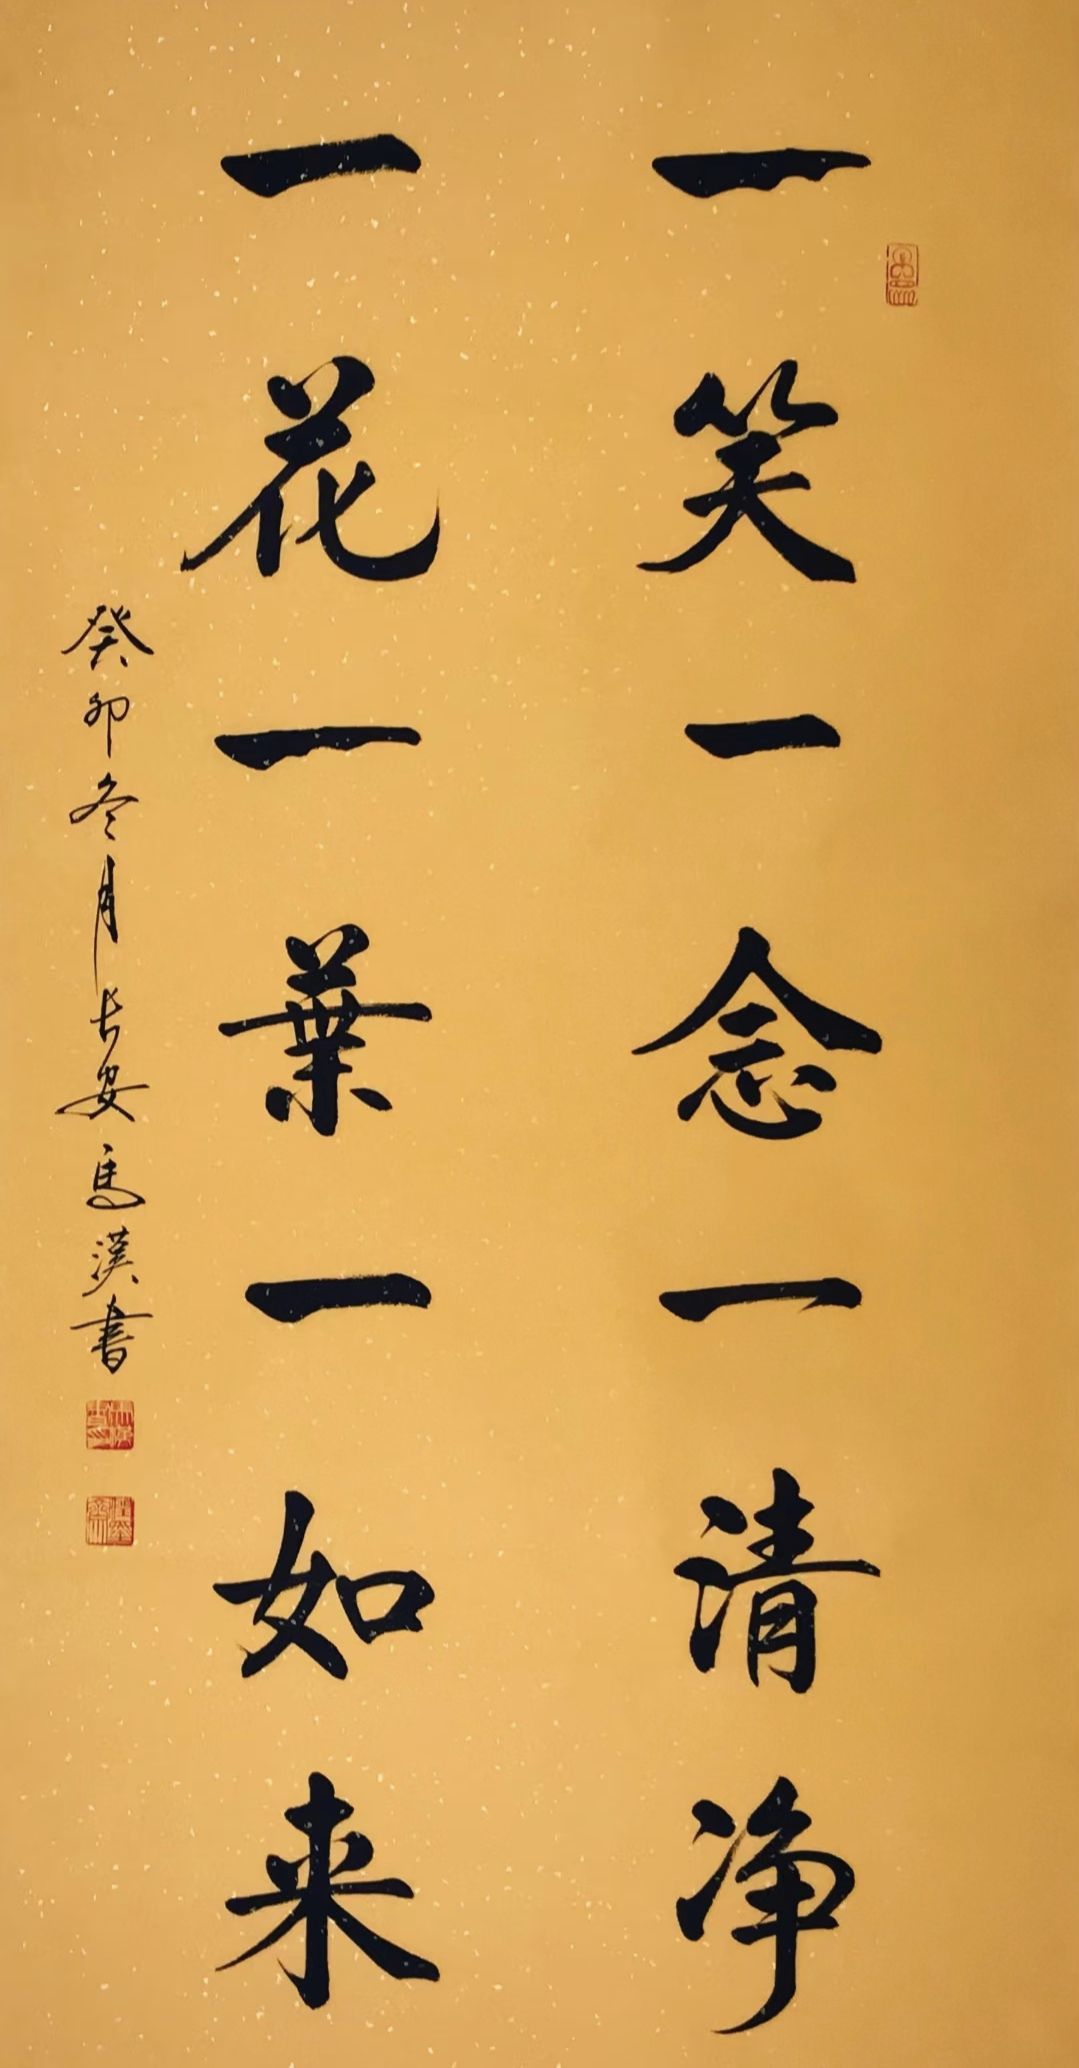 一笑一念一清净
一花一葉一如来
癸卯冬月长安馬漢書